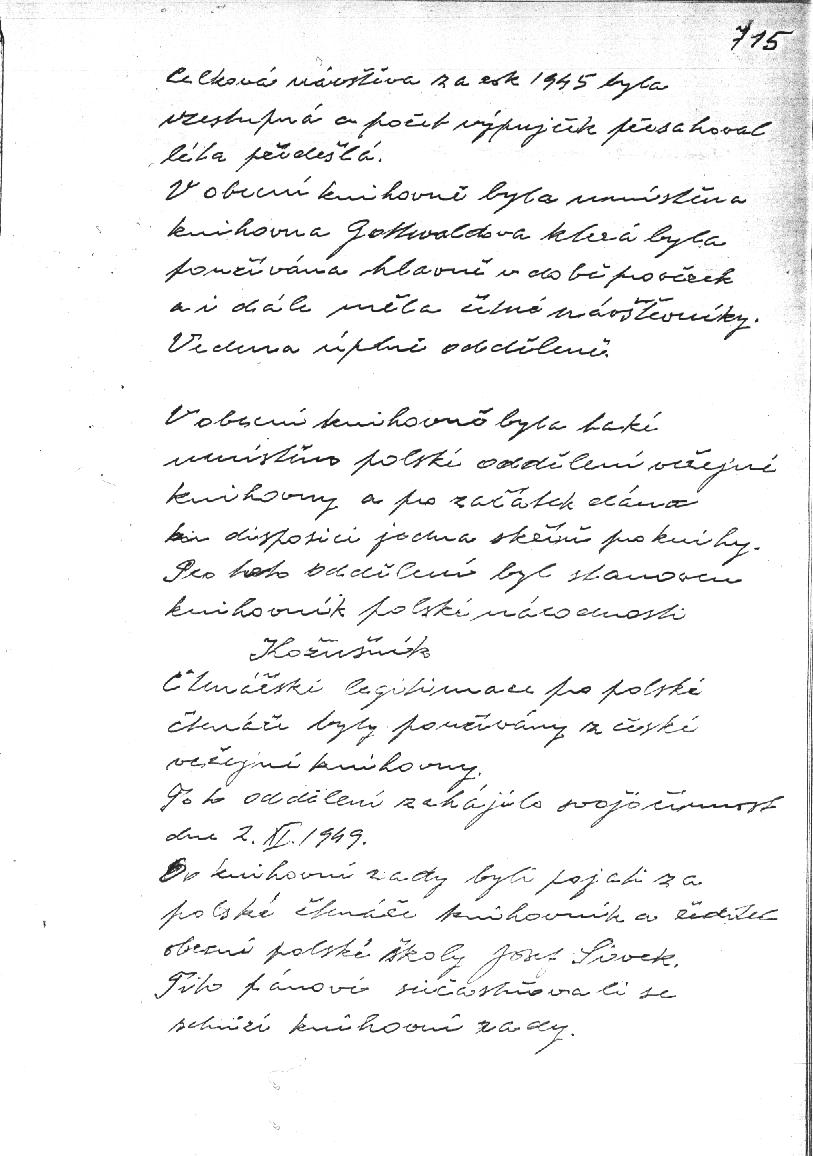 715
Celková návštěva za rok 1945 byla
vzestupná a počet výpujček přesahoval
léta předešlá.
V obecní knihovně byla umístěna
knihovna Gottwaldova která byla
používána hlavně v době prověrek
a i dále měla četné návštěvníky.
Vedena úplně odděleně.
V obecní knihovně byla také
umístěno polské oddělení veřejné
knihovny a pro začátek dána
k disposici jedna skříň pro knihy.
Pro toto oddělení byl stanoven
knihovník polské národnosti
Kožušník
Čtenářské legitimace pro polské
čtenáře byly používány z české
veřejné knihovny.
Toto oddělení zahájilo svojí činnost
dne 2. XI. 1949.
Do knihovní rady byli pojati za
polské čtenáře knihovník a ředitel
obecní polské školy Josef
Tito pánové súčastňovali se
schůzí knihovní rady.